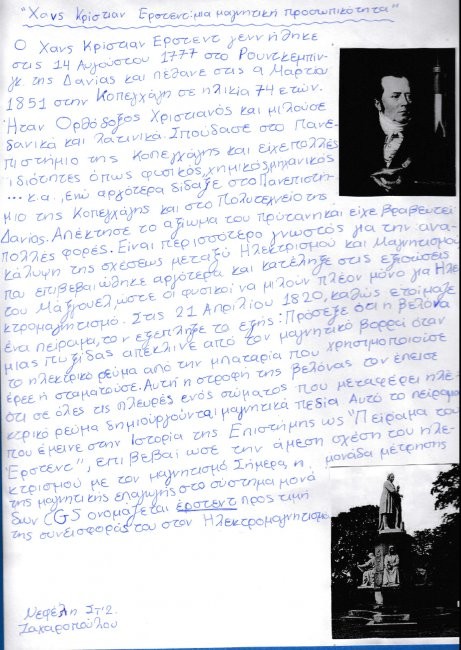 "Χανς Κρίστιαν Έρστεντ: μια μαγνητική προσωπικότητα"
Ο Χανς Κρίστιαν Έρστεντ γεννήθηκε
στις 14 Αυγούστου 1777 στο Ρουντκέμπιν-
γκ της Δανίας και πέθανε στις 9 Μαρτίου
1851 στην Κοπεγχάγη σε ηλικία 74 ετών.
Ήταν Ορθόδοξος Χριστιανός και μιλούσε
δανικά και λατινικά. Σπούδασε στο Πανε-
πιστήμιο της Κοπεγχάγης και είχε πολλές
ιδιότητες όπως φυσικός, χημικός, μηχανικός
... κ.α., ενώ αργότερα δίδαξε στο Πανεπιστή-
μιο της Κοπεγχάγης και στο Πολυτεχνείο της
Δανίας. Απέκτησε το αξίωμα του πρύτανη και είχε βραβευτεί
πολλές φορές. Είναι περισσότερο γνωστός για την ανα-
κάλυψη της σχέσεως μεταξύ Ηλεκτρισμού και Μαγνητισμού
που επιβεβαιώθηκε αργότερα και κατέληξε στις εξισώσεις
του Μάξγουελ, ώστε οι φυσικοί να μιλούν πλέον μόνο για Ηλε-
κτρομαγνητισμό. Στις 21 Απριλίου 1820, καθώς ετοίμαζε
ένα πείραμα, τον εξέπληξε το εξής: Πρόσεξε ότι η βελόνα
μιας πυξίδας απέκλινε από τον μαγνητικό βορρά όταν
το ηλεκτρικό ρεύμα από την μπαταρία που χρησιμοποιούσε
έρεε ή σταματούσε. Αυτή η στροφή της βελόνας τον έπεισε
ότι σε όλες τις πλευρές ενός σώματος που μεταφέρει ηλε-
κτρικό ρεύμα δημιουργούνται μαγνητικά πεδία. Αυτό το πείραμα
που έμεινε στην Ιστορία της Επιστήμης ως "Πείραμα του
Έρστεντ", επιβεβαίωσε την άμεση σχέση του ηλε-
κτρισμού με τον μαγνητισμό. Σήμερα, η μονάδα μέτρησης
της μαγνητικής επαγωγής στο σύστημα μονά
δων CGS ονομάζεται έρστεντ προς τιμή
της συνεισφοράς του στον Ηλεκτρομαγνητισμό
Νεφέλη ΣΤ'2
Ζαχαροπούλου